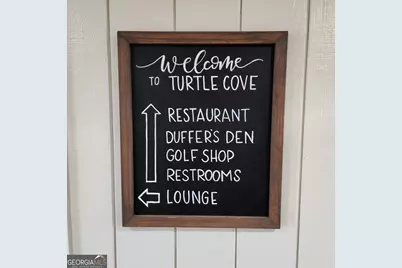 welcome
TO TURTLE COVE
RESTAURANT
DUFFER'S DEN
GOLF SHOP
RESTROOMS
LOUNGE
GEORGIAMLS